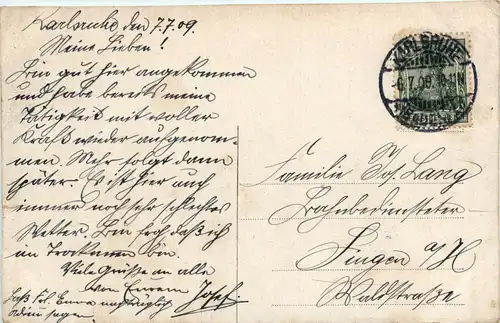 Karlsruhe den 7.7.09.
Meine Lieben!
Bin gut hier angekommen
und habe bereits meine
Tätigkeit mit voller
Kraft wieder aufgenom-
men. Mehr folgt dann
später. Es ist hier auch
immer noch sehr schlechtes
Wetter. Bin froh daß ich
im Trockenen bin.
Viele Grüsse an alle
von Eurem Josef.
Laß Frl. Emma
Adieu sagen
KARLSRUHE
7.09
Familie Jos. Lang
Bahnbediensteter
Singen a/H
Waldstraße